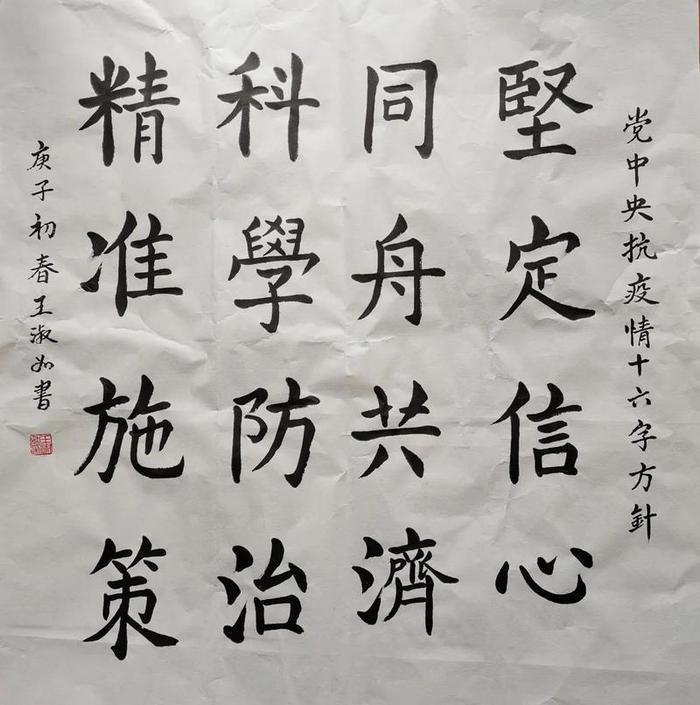 党中央抗疫情十六字方針
堅定信心
同舟共濟
科學防治
精准施策
庚子初春王淑如書